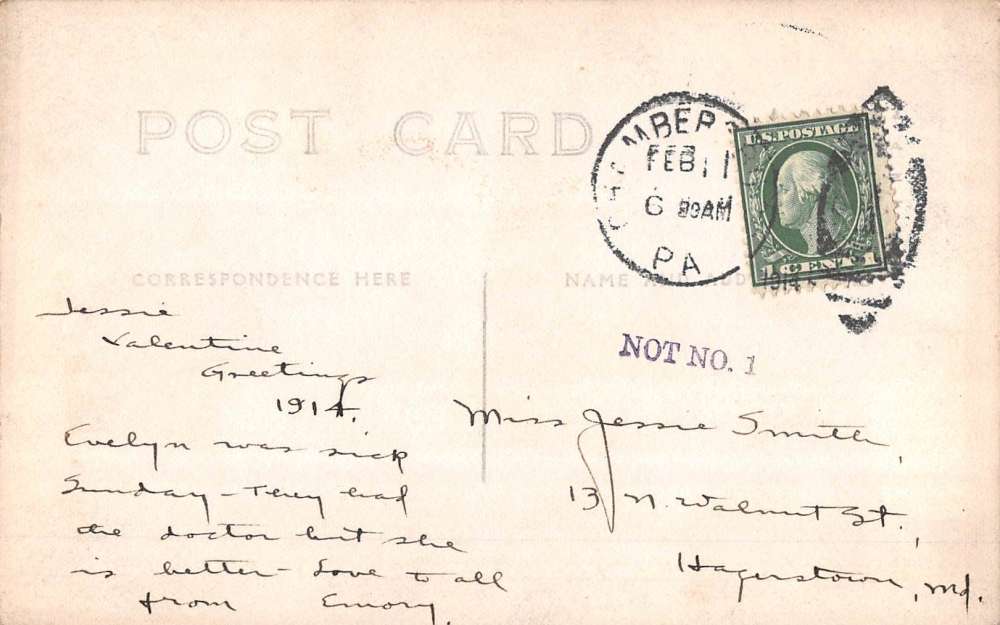 POST CARD
FEB 11
6 AM
PA
U.S. POSTAGE
1914
CORRESPONDENCE HERE
NAME
NOT NO. 1
Jessie
Valentine
Greetings
1914.
Evelyn was sick
Sunday - They had
the doctor but she
is better - Love to all
from Emory.
Miss Jessie Smith,
13 N. Walnut St.,
Hagerstown, Md.